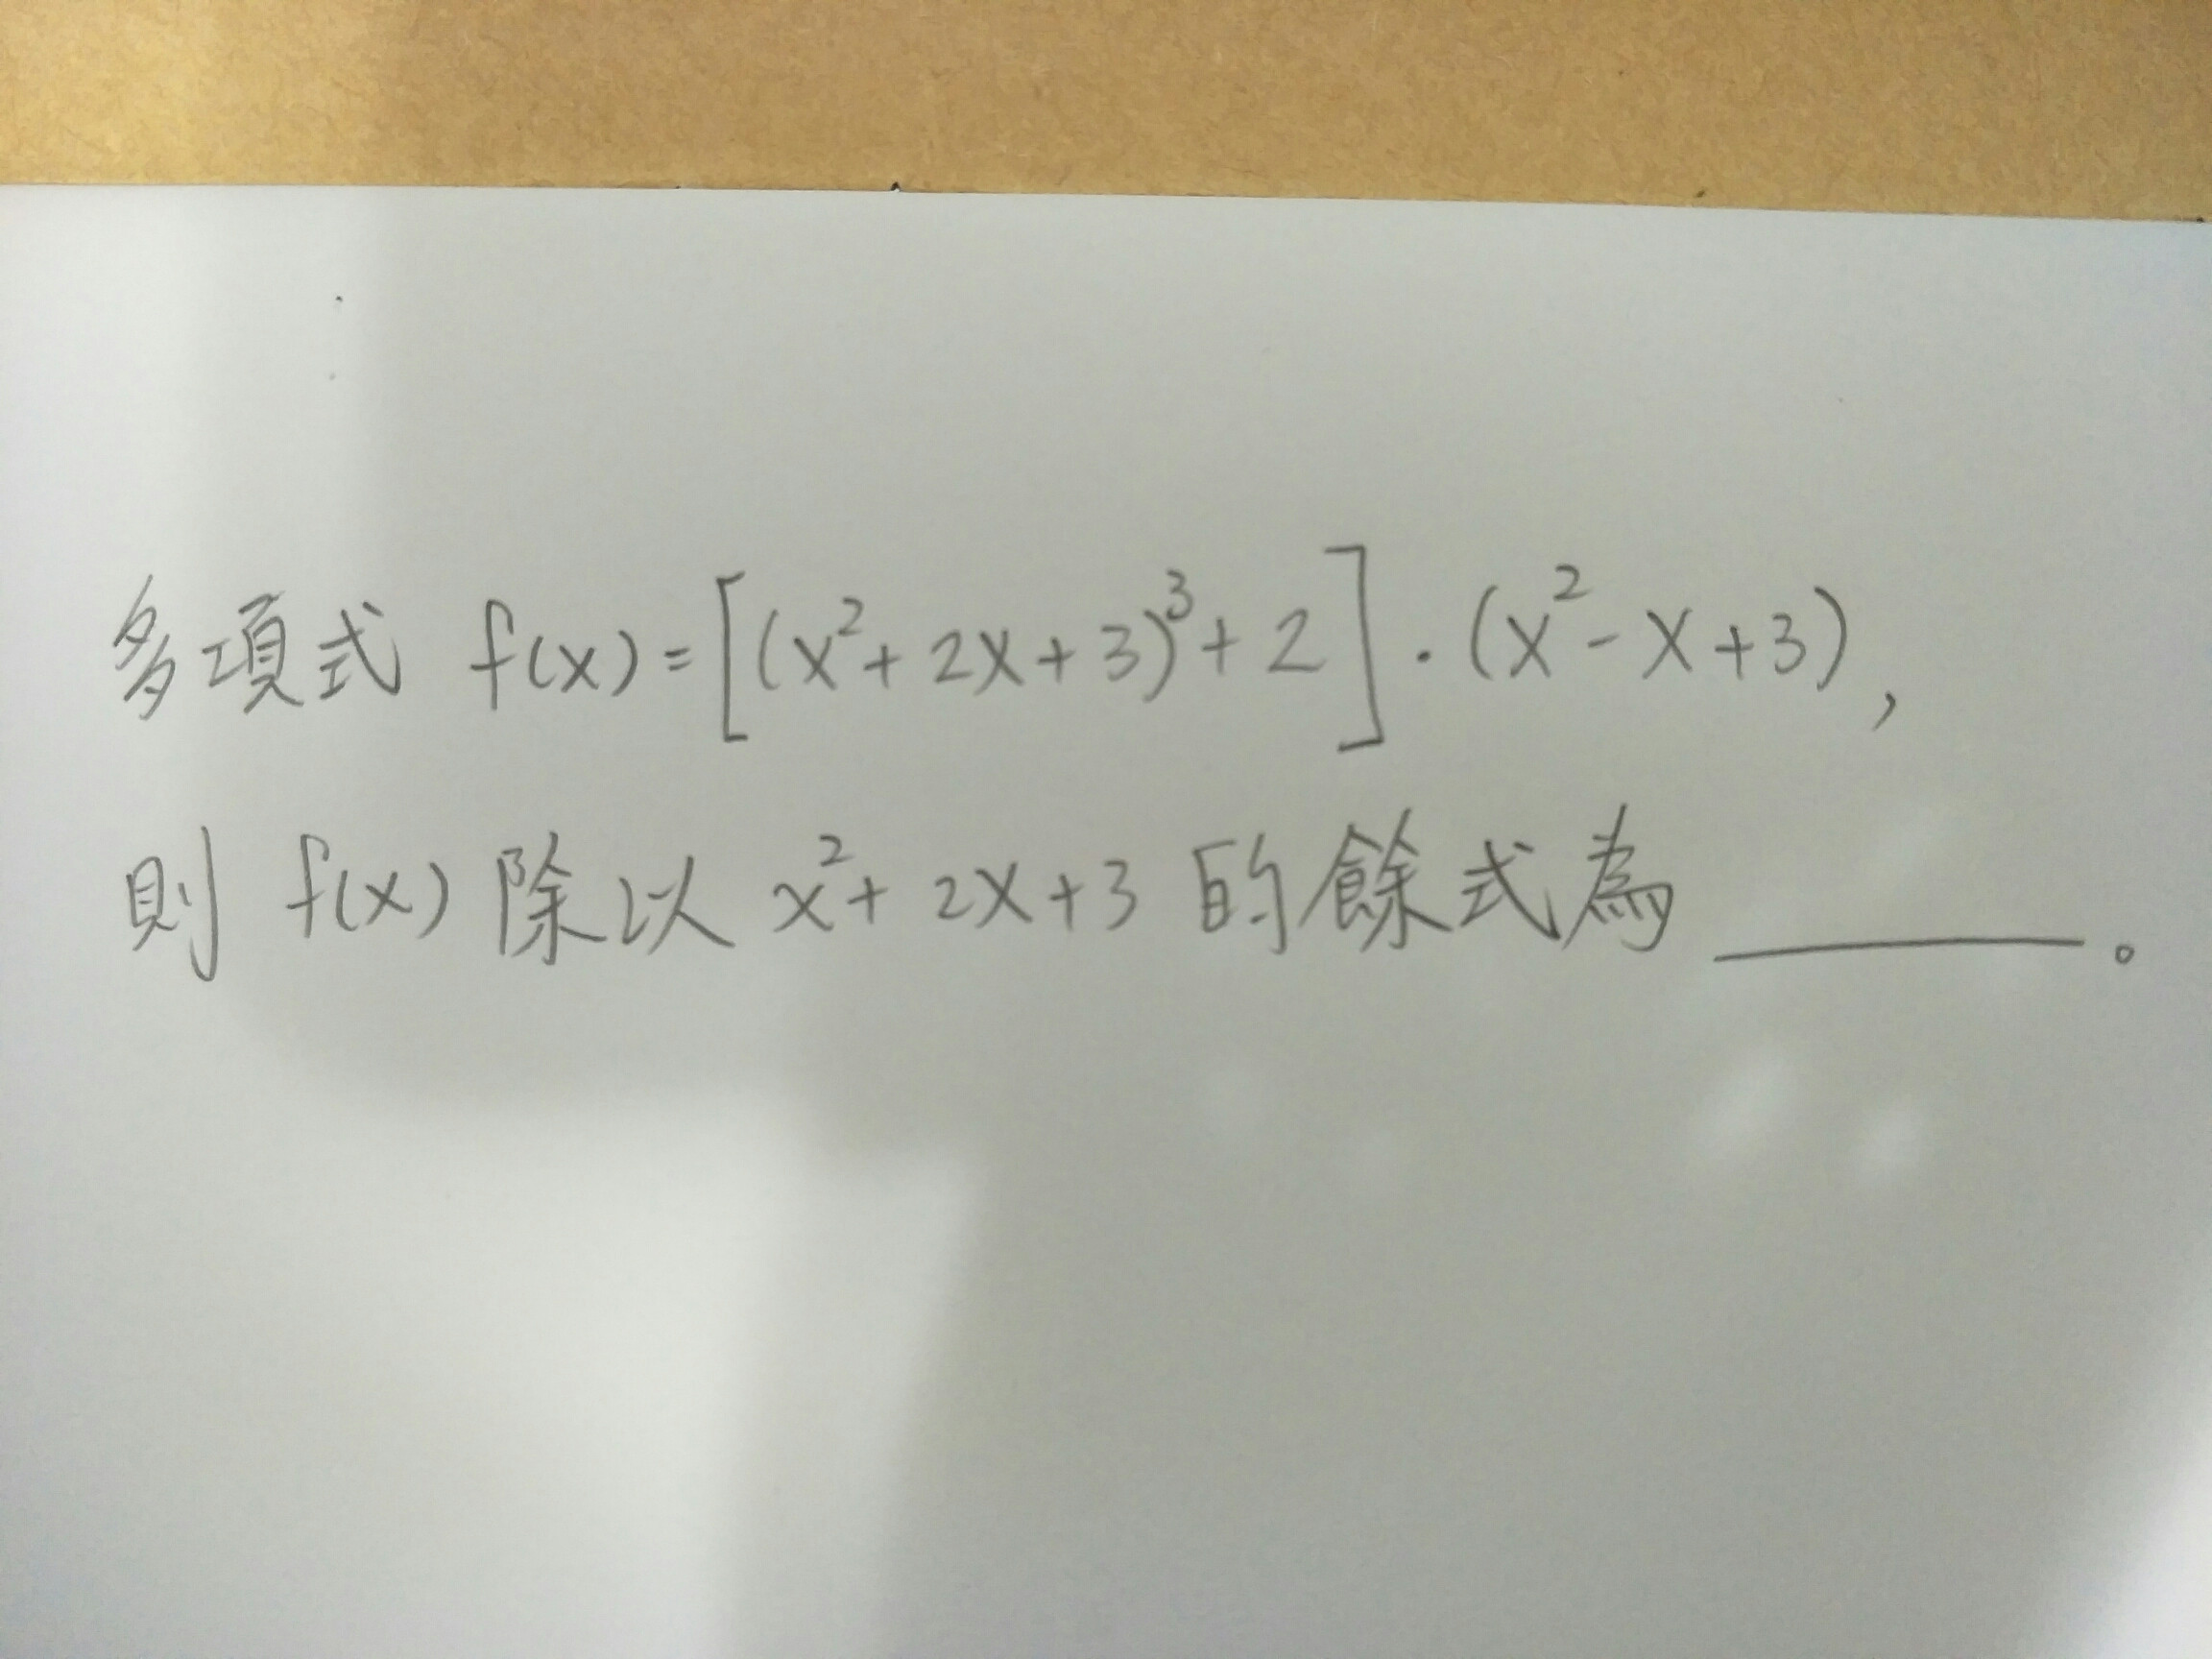 多項式 f(x)=[(x²+2x+3)³+2]·(x²-x+3),
則 f(x)除以 x²+2x+3 的餘式為______。